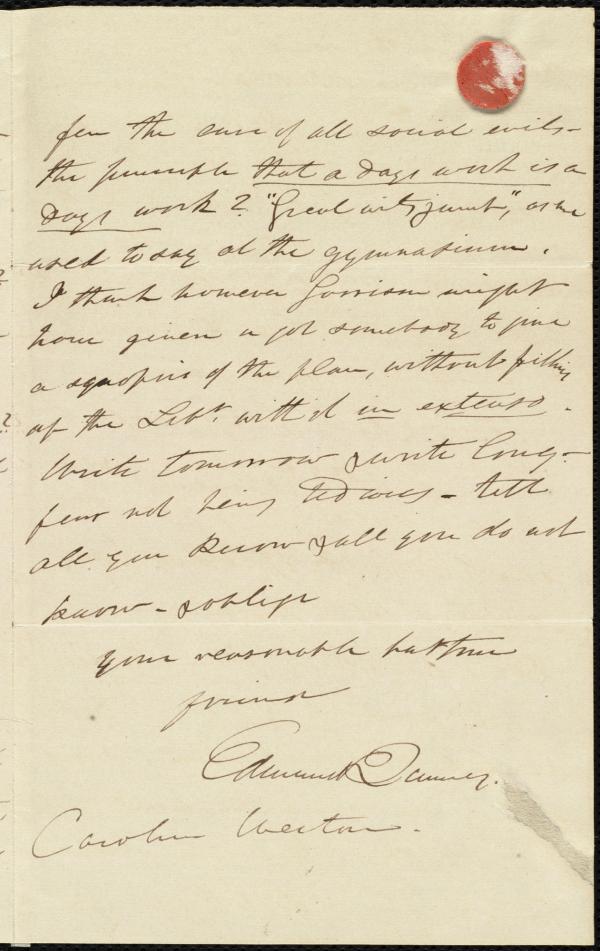 for the cure of all social evils -
the principle that a days work is a
days work? "Great wits jump", as we
used to say at the gymnasium.
I think however Garrison might
have given or got somebody to give
a synopsis of the plan, without filling
up the Libr. with it in extenso.
Write tomorrow & write long -
fear not being tedious - tell
all you know & all you do not
know - & oblige
your reasonable but true
friend
Edmund Quincy.
Caroline Weston.